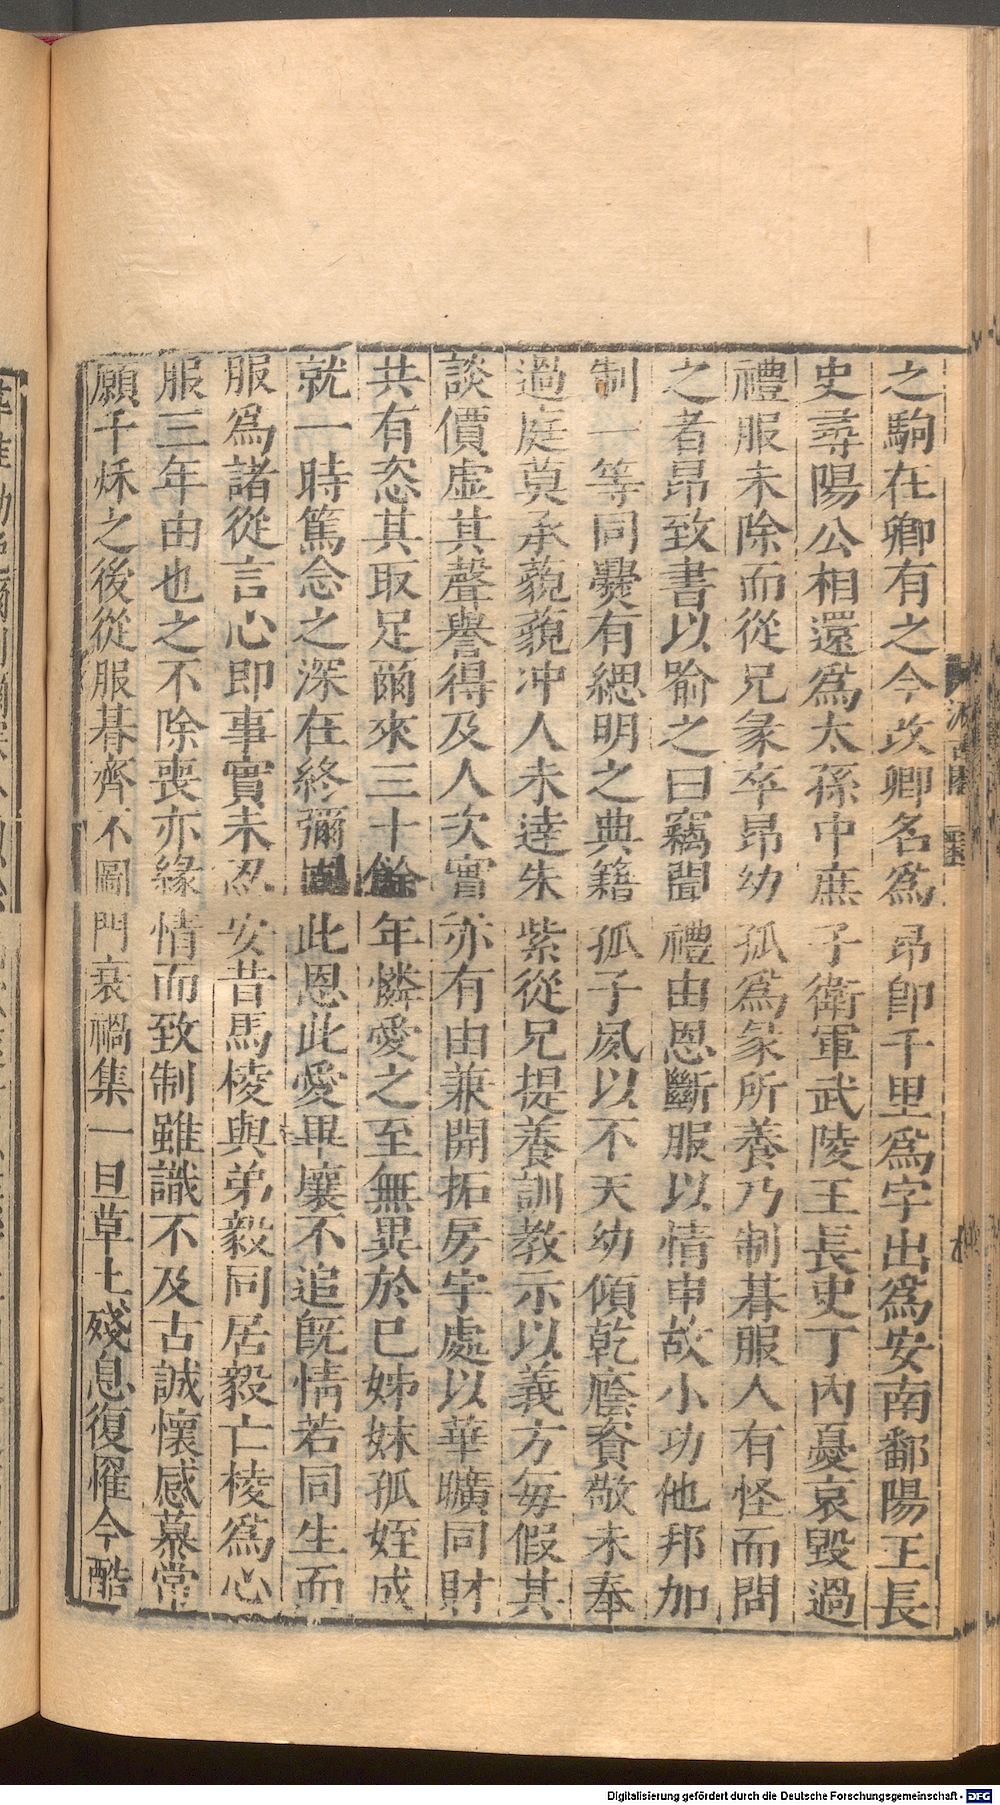 之駒在卿有之今改卿名爲昂卽千里爲字出爲安南鄱陽王長
史尋陽公相還爲太孫中庶子衛軍武陵王長史丁內憂哀毀過
禮服未除而從兄彖卒昂幼孤爲彖所養乃制朞服人有怪而問
之者昂致書以喻之曰竊聞禮由恩斷服以情申故小功他邦加
制一等同爨有緦明之典籍孤子夙以不天幼傾乾廕資敬未奉
過庭莫承藐藐冲人未達朱紫從兄提養訓教示以義方每假其
談價虛其聲譽得及人次實亦有由兼開拓房宇處以華曠同財
共有恣其取足爾來三十餘年憐愛之至無異於已姊妹孤姪成
就一時篤念之深在終彌固此恩此愛畢壤不追旣情若同生而
服爲諸從言心即事實未忍安昔馬棱與弟毅同居毅亡棱爲心
服三年由也之不除喪亦緣情而致制雖識不及古誠懷感慕常
願千秌之後從服朞齊不圖門衰禍集一旦草土殘息復罹今酷
Digitalisierung gefördert durch die Deutsche Forschungsgemeinschaft - DFG